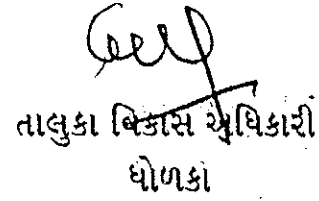 તાલુકા વિકાસ અધિકારી
ધોળકા